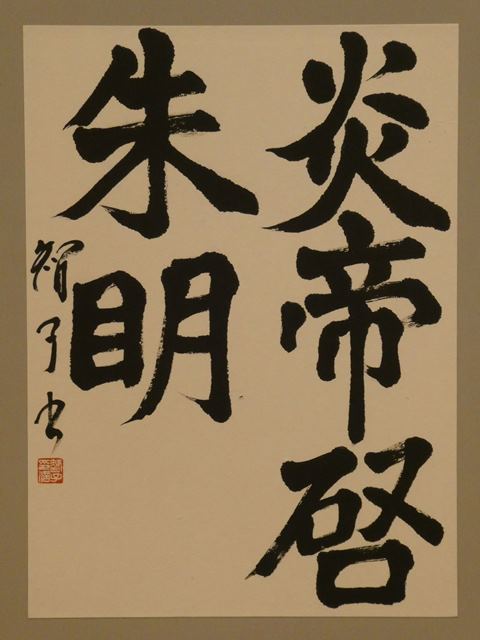 炎帝啓
朱明
智子書